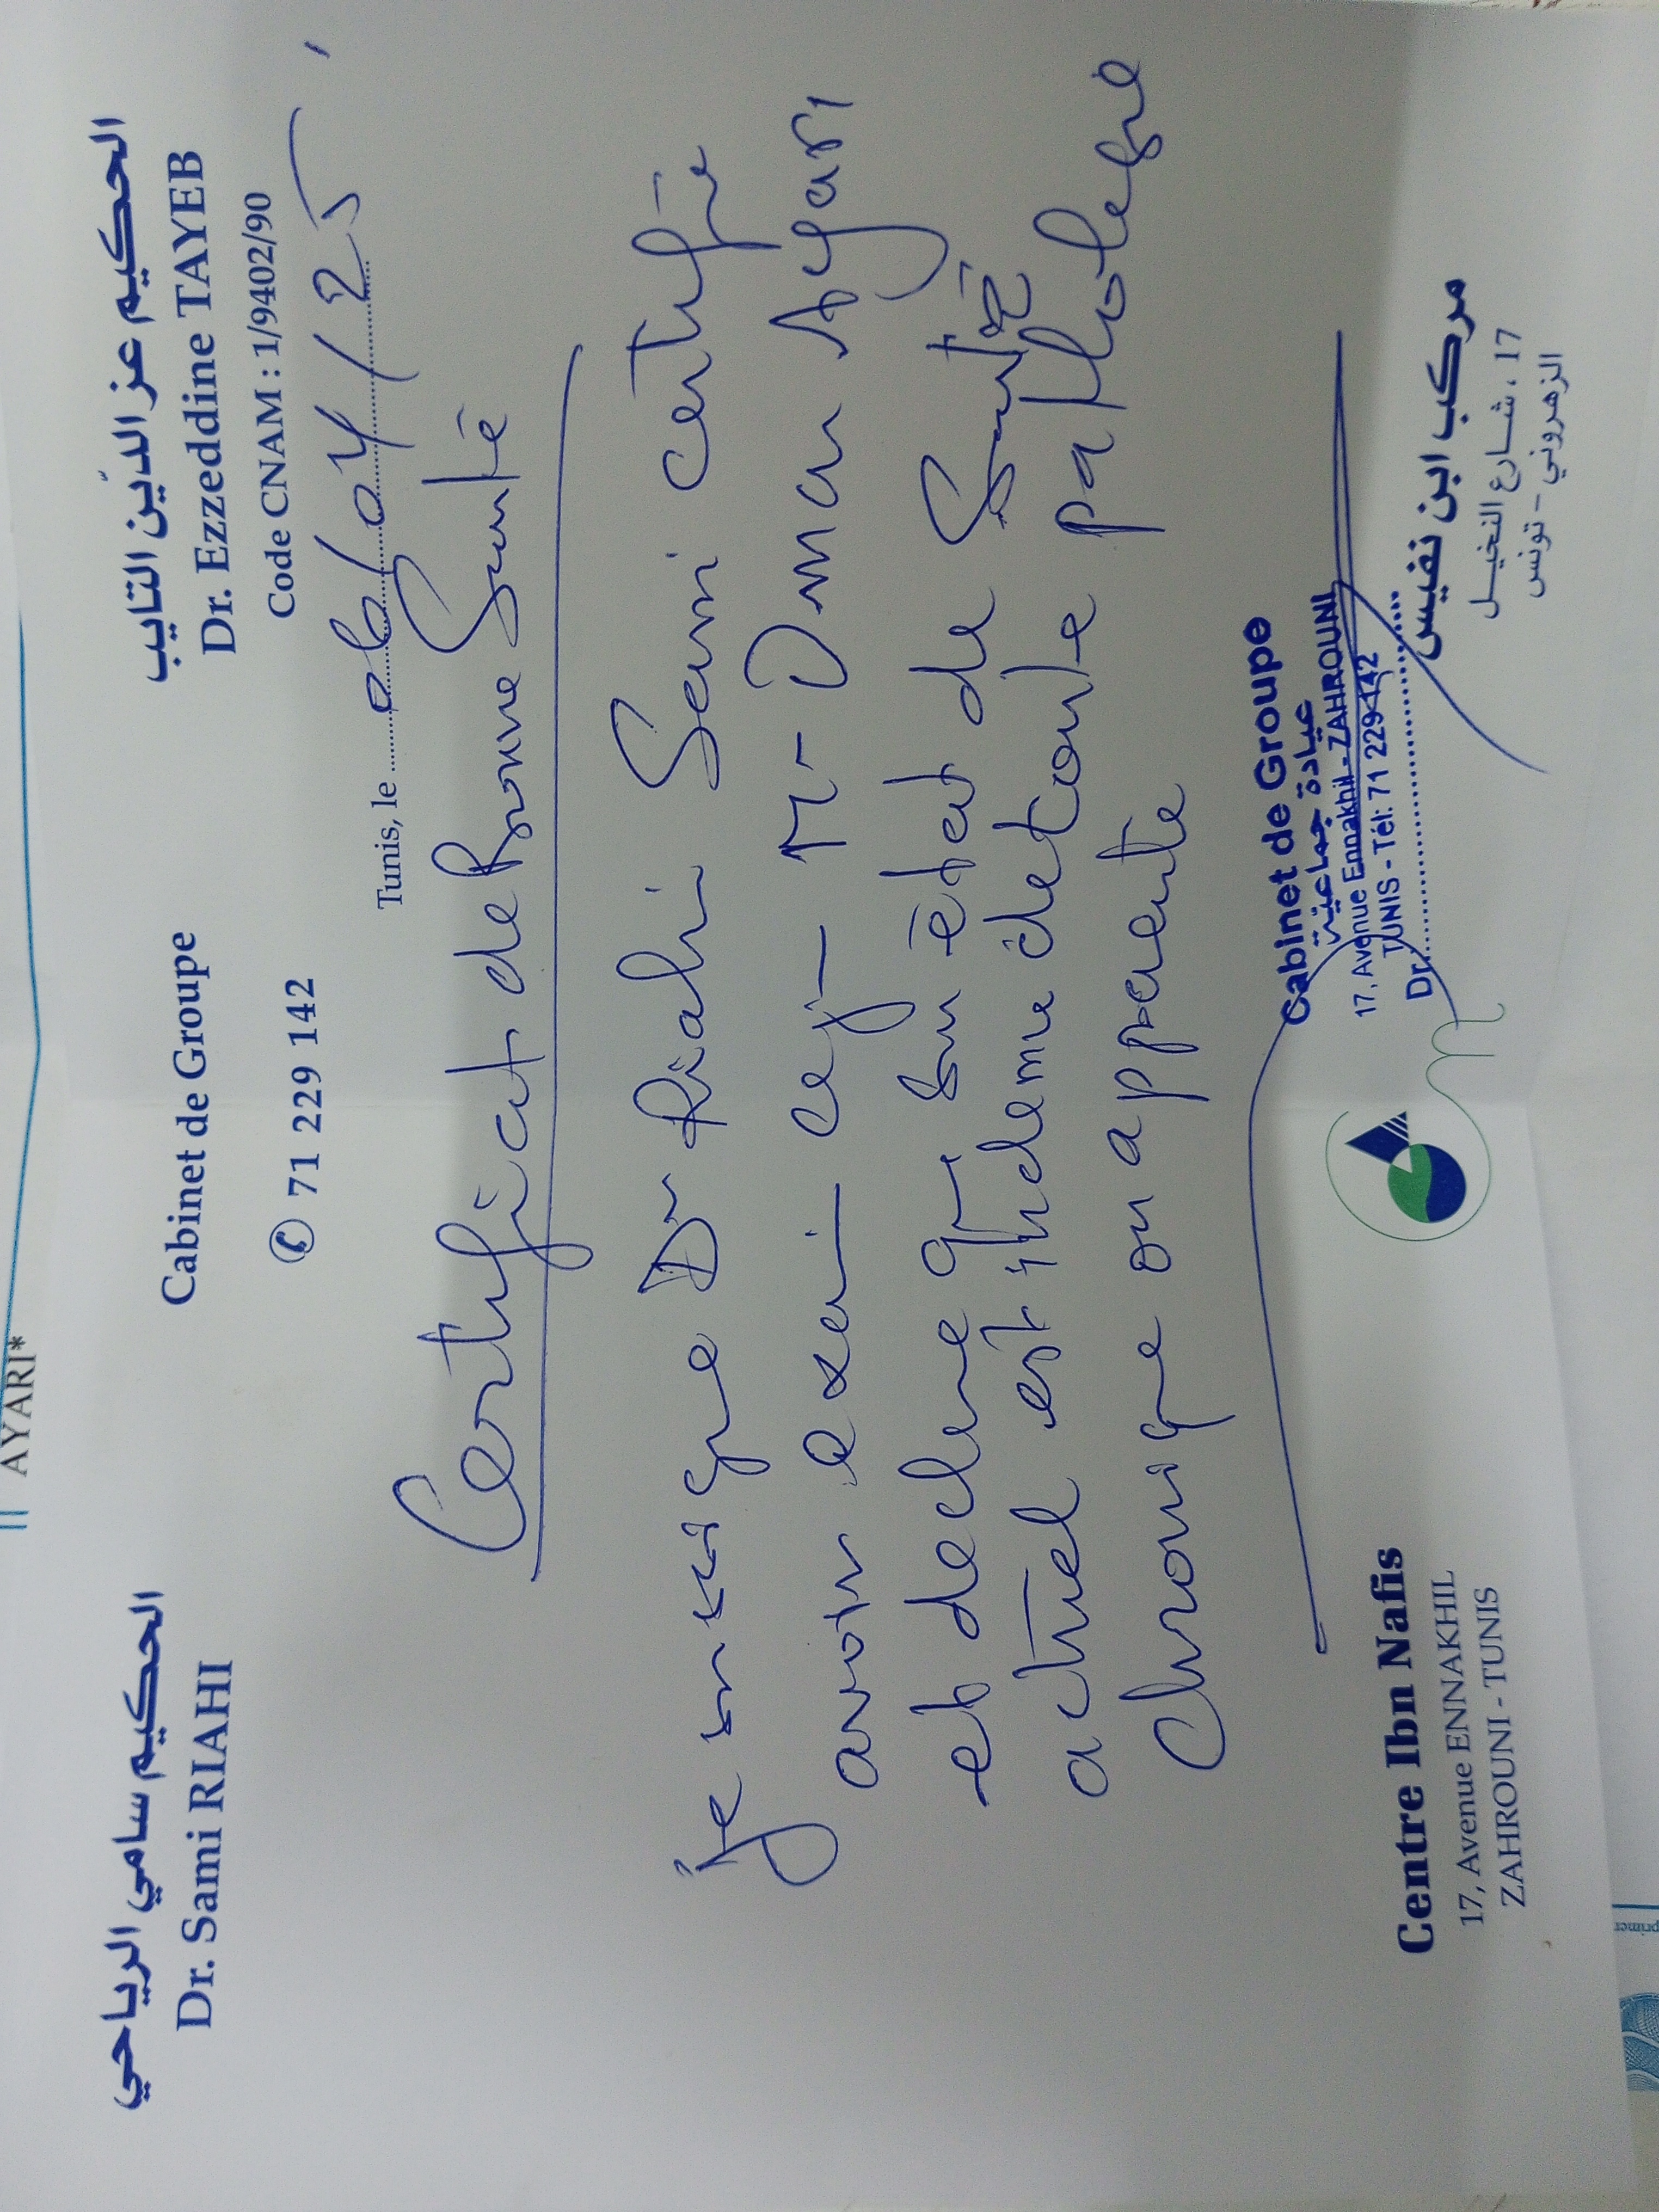 AYARI*
الحكيم سامي الرياحي
Dr. Sami RIAHI
Cabinet de Groupe
✆ 71 229 142
الحكيم عز الدّين التايب
Dr. Ezzeddine TAYEB
Code CNAM : 1/9402/90
Tunis, le 06/04/25
Certificat de Bonne Santé
je soussigné Dr Riahi Sami certifie
avoir examiné ce j- Mr Omar Ayari
et declare que son état de Santé
actuel est indemne de toute pathologie
chronique ou apparente
Cabinet de Groupe
عيادة جماعية
17, Avenue Ennakhil - ZAHROUNI
TUNIS - Tél: 71 229 142
Dr.
Centre Ibn Nafis
17, Avenue ENNAKHIL
ZAHROUNI - TUNIS
مركب ابن نفيس
17 ، شارع النخيل
الزهروني - تونس
primer